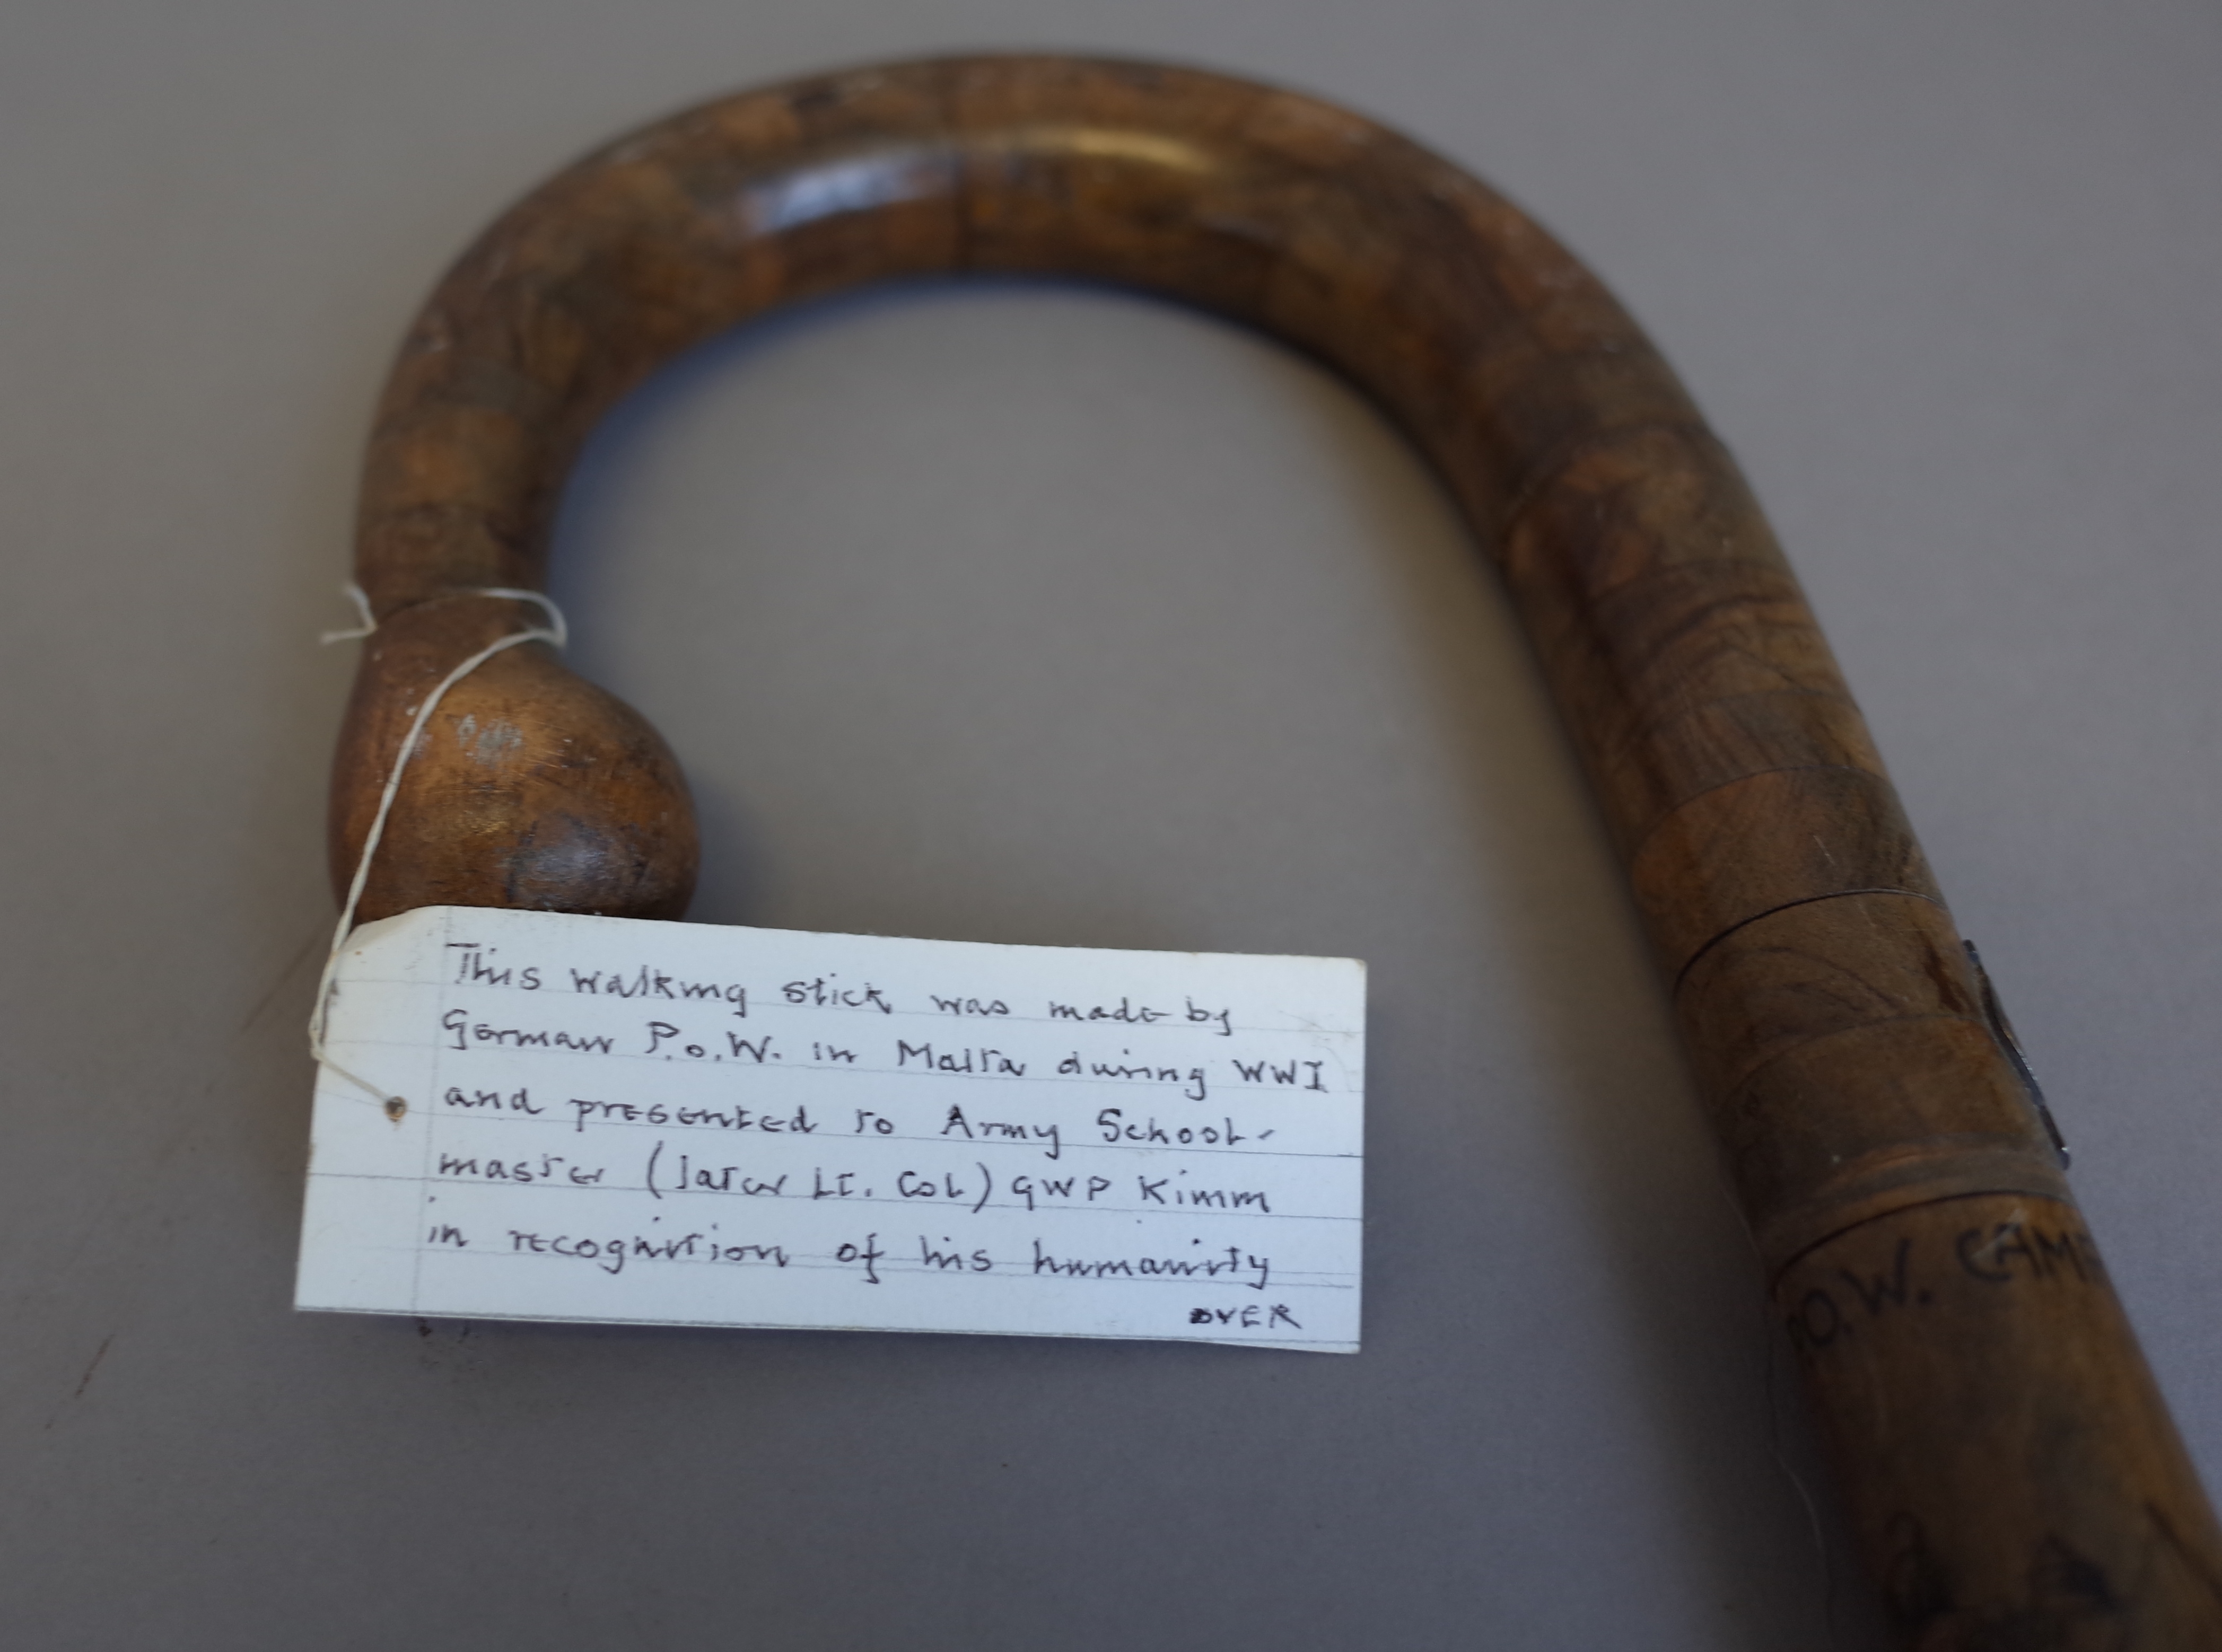 This walking stick was made by
German P.o.W. in Malta during WWI
and presented to Army School-
master (later Lt. Col) GWP Kimm
in recognition of his humanity
OVER
O.W. CAM